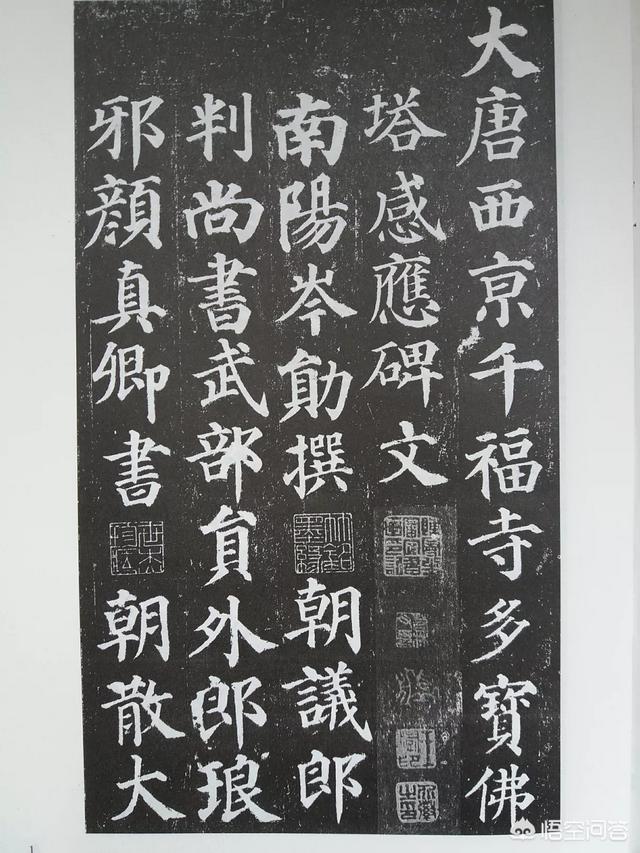 大唐西京千福寺多寶佛
塔感應碑文
南陽岑勛撰
朝議郎
判尚書武部員外郎琅
邪顏真卿書
朝散大
1
悟空问答